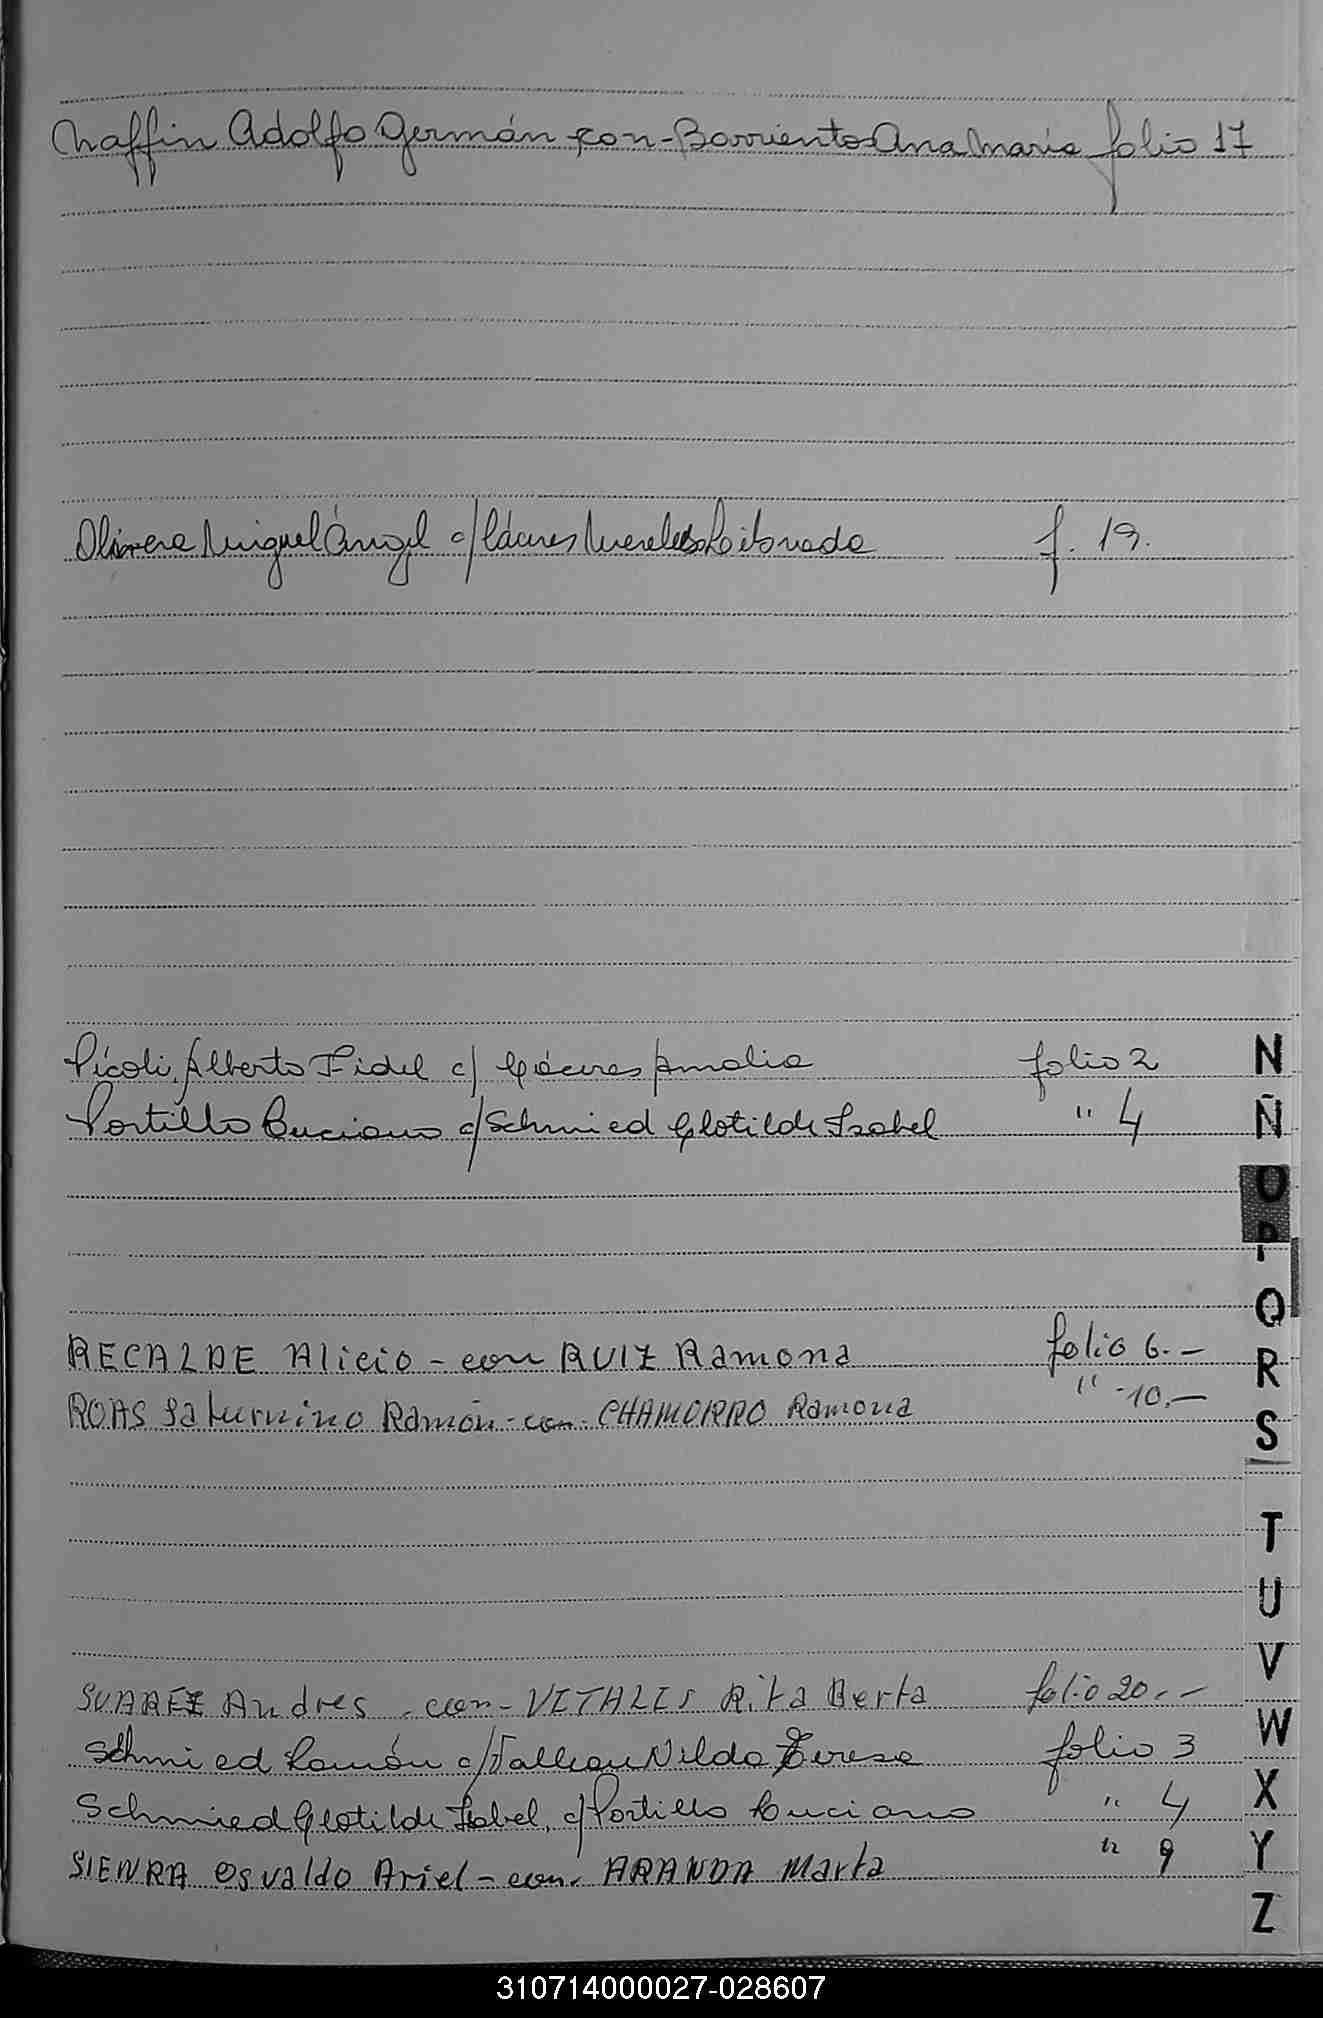 Chaffin Adolfo Germán con - Barriento Ana María folio 17
Olivera Miguel Ángel c/ Cáceres f. 19.
Pícoli, Alberto Fidel c/ Cáceres Amalia folio 2
Portillo Luciano c/ Schmied Clotilde Isabel " 4
RECALDE Alicio - con RUIZ Ramona folio 6. -
ROAS Saturnino Ramón - con - CHAMORRO Ramona " - 10. -
SUAREZ Andres - con - VITALIS Rita Berta folio 20. - -
Schmied Ramón c/ Nilda Teresa folio 3
Schmied Clotilde Isabel, c/ Portillo Luciano " 4
SIENRA Osvaldo Ariel - con. ARANDA Marta " 9
N
Ñ
O
P
Q
R
S
T
U
V
W
X
Y
Z
310714000027-028607